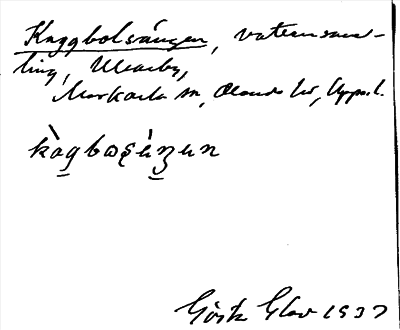 Kaggbolsängen, vattensam-
ling, Ulvarby,
Morkarla sn, Olands hd, Upps. l.
kàgboʂɛ́ŋɛn
Gösta Olov 1937